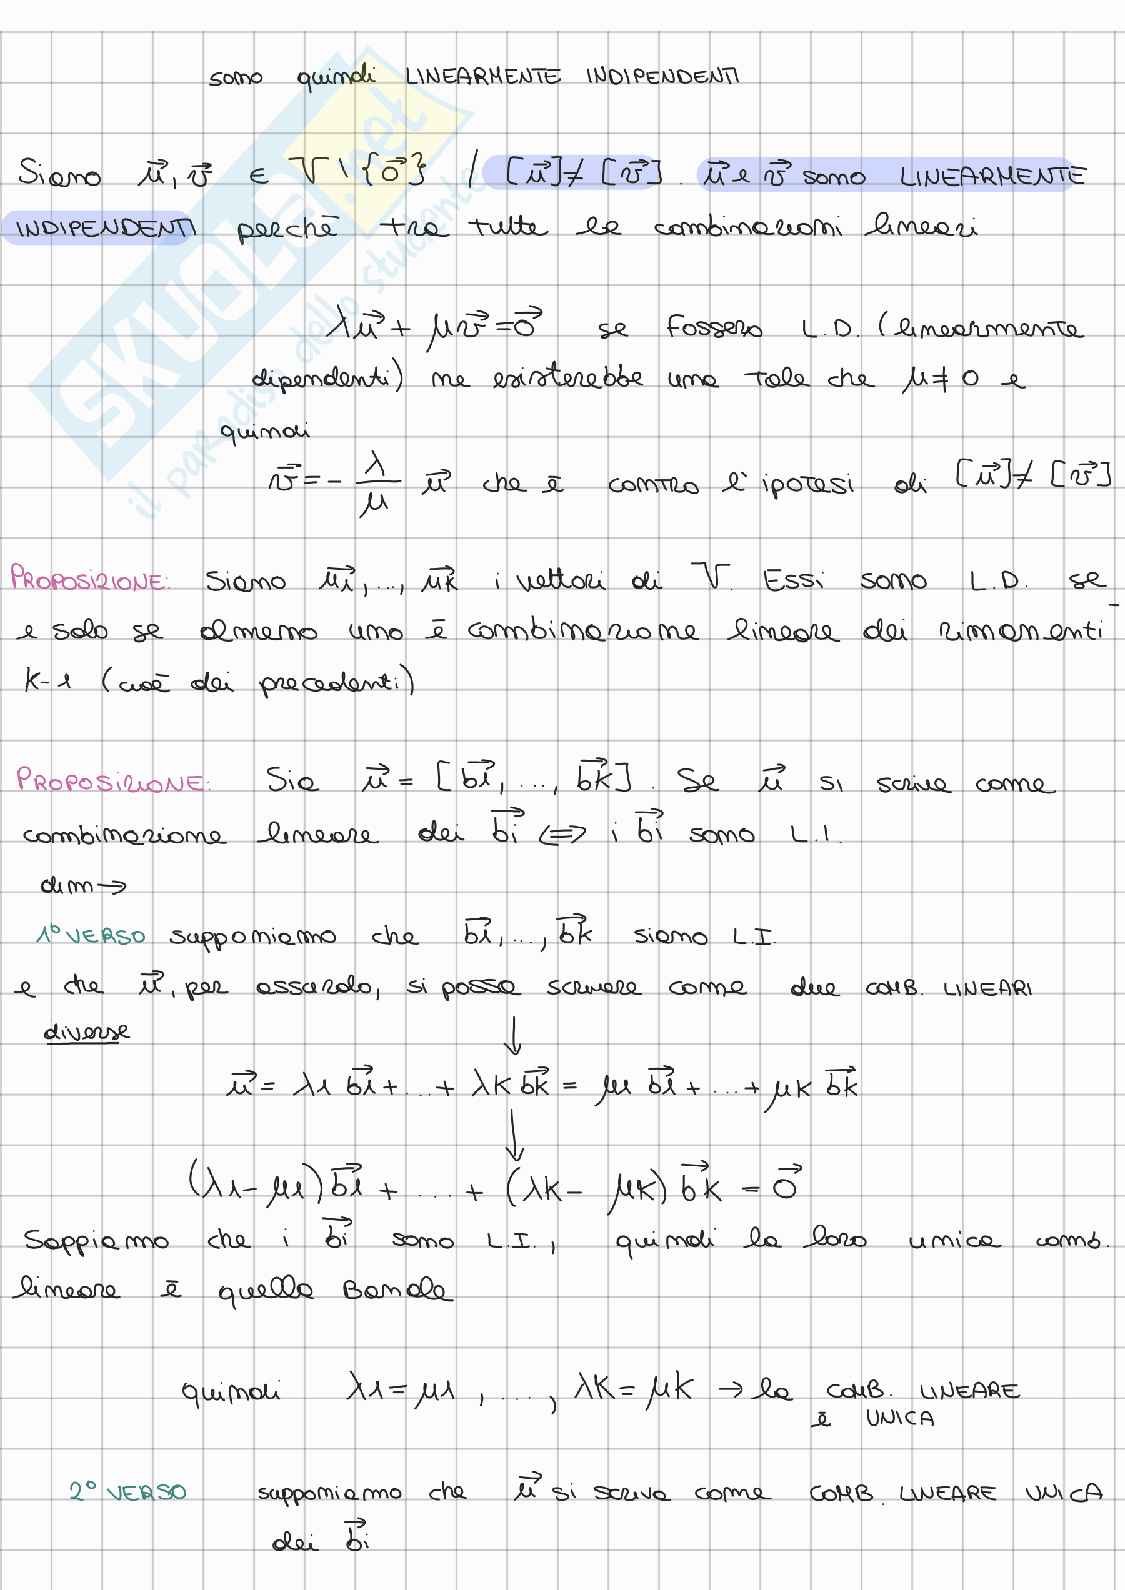 sono quindi LINEARMENTE INDIPENDENTI
Siano u⃗, v⃗ ∈ V \ {o⃗} / [u⃗] ≠ [v⃗]. u⃗ e v⃗ sono LINEARMENTE
INDIPENDENTI perchè tra tutte le combinazioni lineari
λu⃗ + μv⃗ = o⃗ se fossero L.D. (linearmente
dipendenti) ne esisterebbe una tale che μ ≠ 0 e
quindi
v⃗ = - λ/μ u⃗ che è contro l'ipotesi di [u⃗] ≠ [v⃗]
PROPOSIZIONE: Siano u⃗1, ..., u⃗k i vettori di V. Essi sono L.D. se
e solo se almeno uno è combinazione lineare dei rimanenti
k-1 (cioè dei precedenti)
PROPOSIZIONE: Sia u⃗ = [b⃗1, ..., b⃗k]. Se u⃗ si scrive come
combinazione lineare dei b⃗i ⟺ i b⃗i sono L.I.
dim →
1° VERSO supponiamo che b⃗1, ..., b⃗k siano L.I.
e che u⃗, per assurdo, si possa scrivere come due COMB. LINEARI
diverse
↓
u⃗ = λ1 b⃗1 + ... + λk b⃗k = μ1 b⃗1 + ... + μk b⃗k
↓
(λ1 - μ1) b⃗1 + ... + (λk - μk) b⃗k = o⃗
Sappiamo che i b⃗i sono L.I., quindi la loro unica comb.
lineare è quella Banale
quindi λ1 = μ1, ..., λk = μk → la COMB. LINEARE
è UNICA
2° VERSO supponiamo che u⃗ si scriva come COMB. LINEARE UNICA
dei b⃗i
SKUOLA.net
il paradiso dello studente